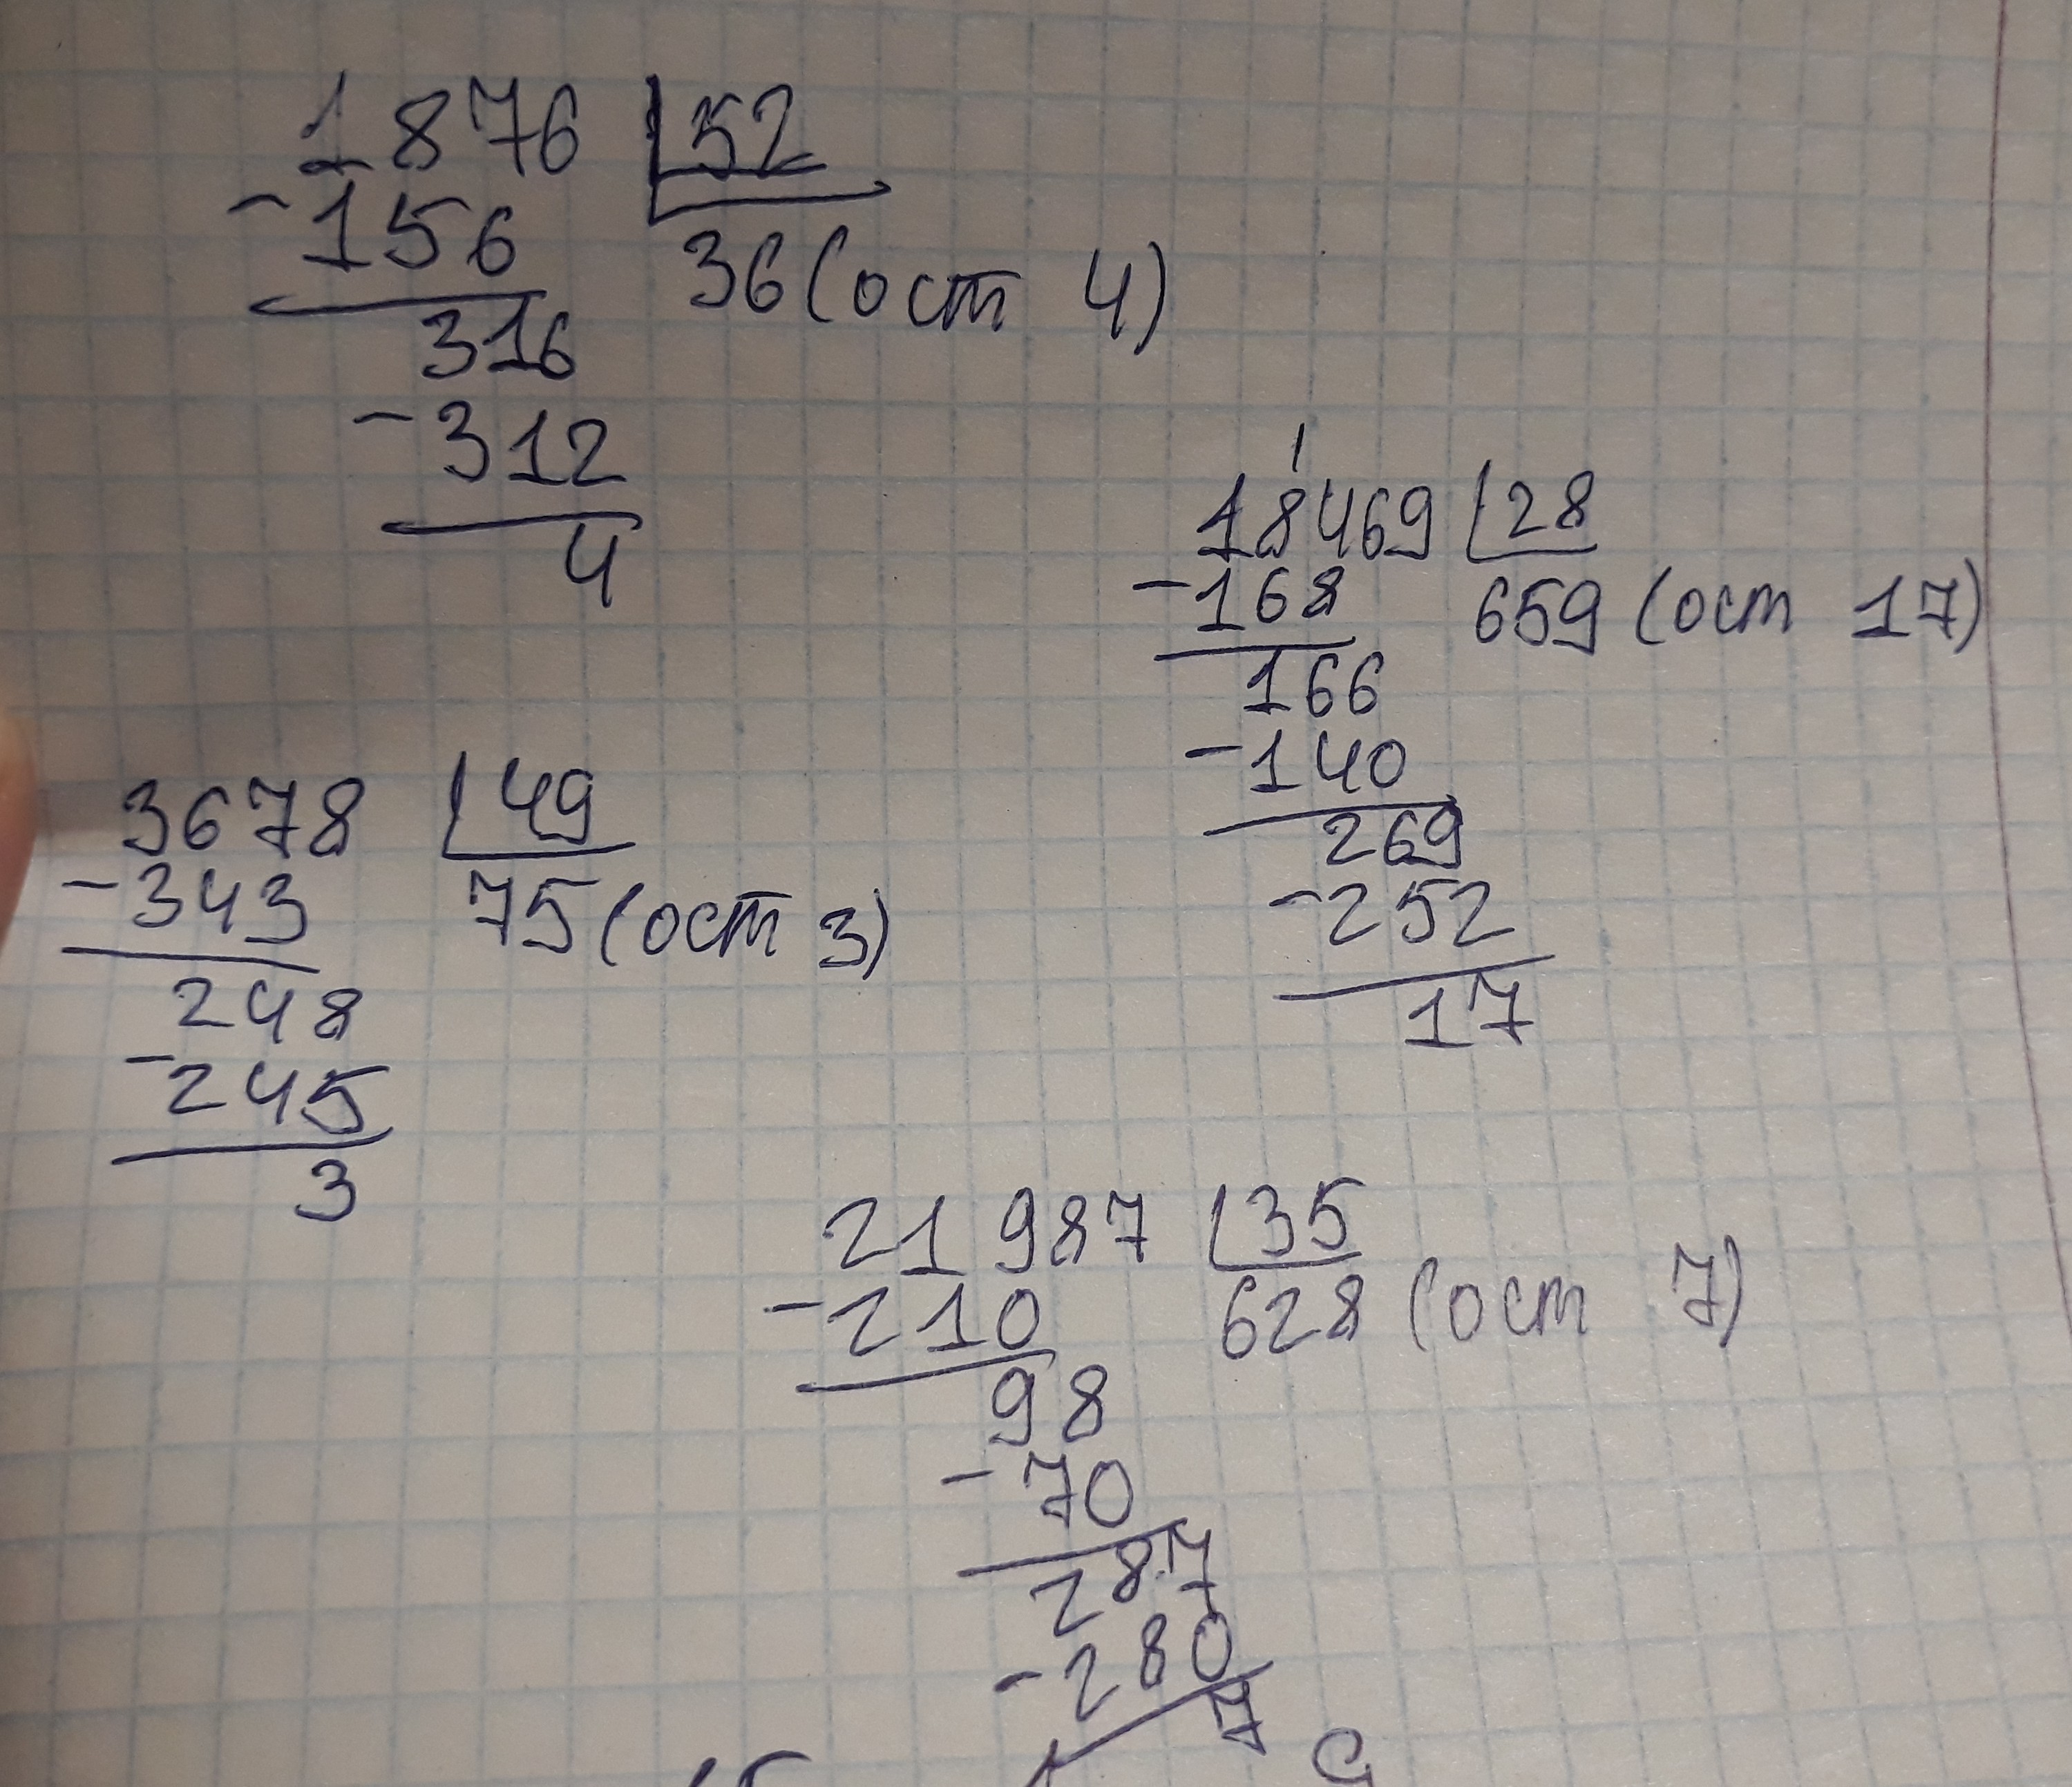 1876 52
-156
36(ост 4)
316
-312
4
18469 28
-168 659 (ост 17)
166
-140
269
-252
17
3678 49
-343 75(ост 3)
248
-245
3
21987 35
-210 628 (ост 7)
98
-70
287
-280
7